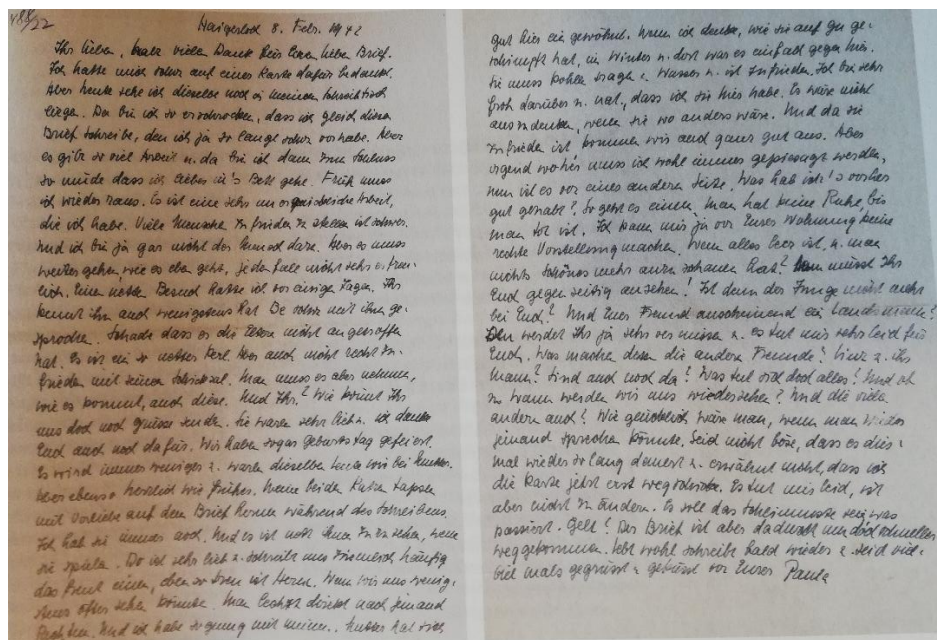 488/22
Haigerloch 8. Febr. 1942
Ihr lieben, habt vielen Dank für Euren lieben Brief.
Ich hatte mich schon auf einer Karte dafür bedankt.
Aber heute sehe ich dieselbe noch in meinem Schreibtisch
liegen. Da bin ich so erschrocken, dass ich gleich diesen
Brief schreibe, den ich ja so lange schon vorhabe. Aber
es gibt so viel Arbeit u. da bin ich dann zum Schluss
so müde dass ich lieber in's Bett gehe. Früh muss
ich wieder raus. Es ist eine sehr Arbeit,
die ich habe. Viele Menschen zufrieden zu stellen ist schwer.
Und ich bin ja gar nicht der Mensch dazu. Aber es muss
weiter gehen, wie es eben geht, jedenfalls nicht sehr erfreu-
lich. Einen netten Besuch hatte ich vor einigen Tagen. Ihr
kennt ihn auch wenigstens hat schon mit ihm ge-
sprochen. Schade dass er die Eltern nicht angetroffen
hat. Es ist ein so netter Kerl. Aber auch nicht recht zu-
frieden mit seinem Schicksal. Man muss es aber nehmen,
wie es kommt, auch diese. Und Ihr? Wie könnt Ihr
uns doch noch Grüsse senden. Sie waren sehr lieb u. ich danke
Euch auch noch dafür. Wir haben sogar Geburtstag gefeiert.
Es wird immer weniger u. waren dieselben Leute wie bei Mutter.
Aber ebenso herzlich wie früher. Meine beiden Katzen tapsen
mit Vorliebe auf dem Brief herum während des Schreibens.
Ich hab sie immer noch. Und es ist nett ihnen zuzusehen, wenn
sie spielen. Do ist sehr lieb u. schreibt uns ziemlich häufig
das freut einen, ebenso treu ist Wenn wir uns wenig-
stens öfter sehen könnten. Man lechzt direkt nach jemand
Und ich habe genug mit meinen.. Mutter hat sich
gut hier eingewöhnt. Wenn ich denke, wie sie auf ge-
schimpft hat, im Winter u. dort war es einfach gegen hier.
Sie muss Kohlen tragen u. Wasser u. ist zufrieden. Ich bin sehr
froh darüber u. , dass ich sie hier habe. Es wäre nicht
auszudenken, wenn sie wo anders wäre. Und da sie
zufrieden ist kommen wir auch ganz gut aus. Aber
irgend woher muss ich wohl immer gepiesagt werden,
nun ist es von einer anderen Seite. Was hab ich's vorher
gut gehabt! So geht es einem, man hat keine Ruhe, bis
man tot ist. Ich kann mir ja von Eurer Wohnung keine
rechte Vorstellung machen. Wenn alles leer ist, u. man
nichts schönes mehr anzuschauen hat? Nun müsst Ihr
Euch gegenseitig ansehen! Ist denn der Junge nicht mehr
bei Euch? Und Euer Freund anscheinend ein Landsmann?
Den werdet Ihr ja sehr vermissen u. es tut mir sehr leid für
Euch. Was machen denn die anderen Freunde? u. ihr
Mann? Sind auch noch da? Was tut sich doch alles! Und ob
u. wann werden wir uns wiedersehen? Und die vielen
andern auch! Wie glücklich wäre man, wenn man wieder
jemand sprechen könnte. Seid nicht böse, dass es dies-
mal wieder so lang dauert u. erwähnt nicht, dass ich
die Karte jetzt erst wegschicke. Es tut mir leid, ist
aber nicht zu ändern. Es soll das Schlimmste sein was
passiert. Gelt! Der Brief ist aber dadurch nun doch schneller
weggekommen. Lebt wohl schreibt bald wieder u. seid viel-
viel mals gegrüsst u. geküsst von Eurer Paula